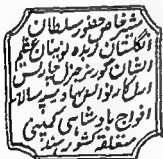 مشیر خاص حضور سلطان
انگلستان کریده نوینان عظیم
الشان گورنر جنرل چارلس
ارل کارنوالس بهادر سپه سالار
افواج بادشاهی و کمپنی
متعلقه کشور هند